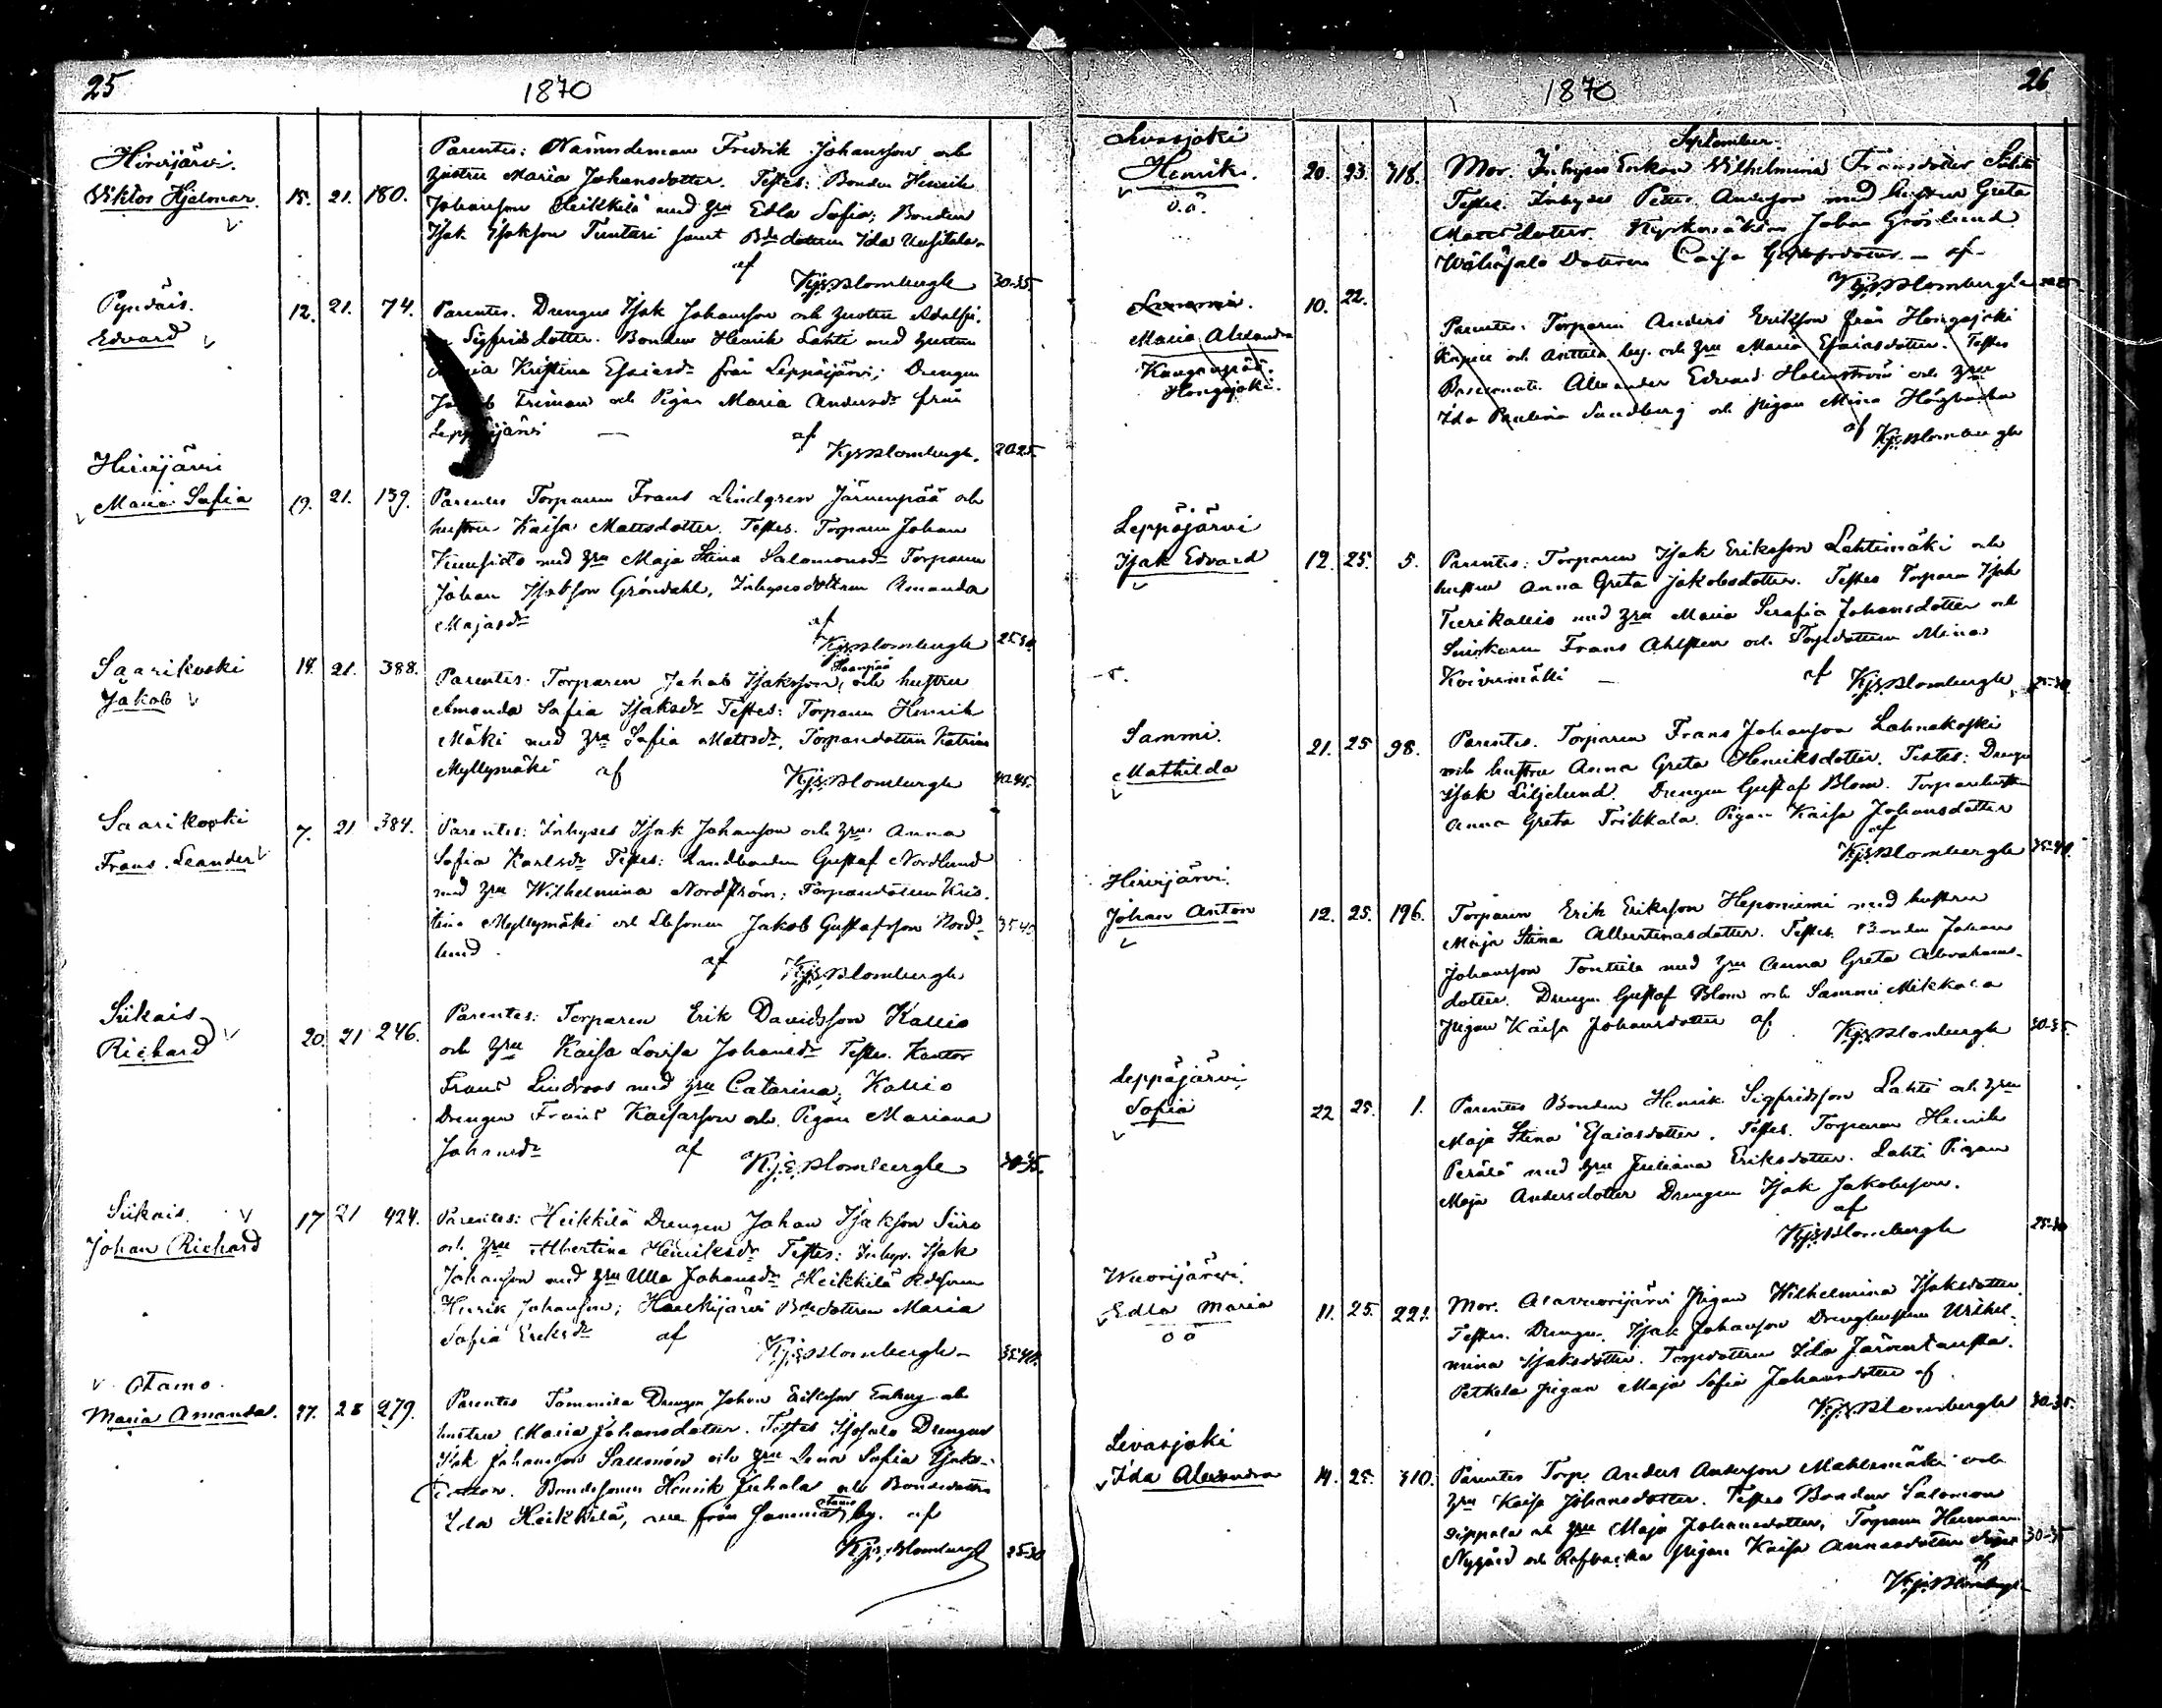 25
1870
Hirvijärvi.
Viktor Hjalmar. 15. 21. 180.
Parentes: Nämndeman Fredrik Johansson och
hustru Maria Johansdotter. Testes: Bonden Henrik
Johansson Heikkilä med hru Edla Sofia; Bonden
Isak Isaksson Tuntari samt Bdedottern Ida Uusitalo
af
Kjs Blombergh 30-35.
Pyndäis.
Edvard 12. 21. 74.
Parentes. Drengen Isak Johansson och hustru Adolfi-
Sigfridsdotter. Bonden Henrik Lahti med hustru
Kristina Esaiasdr från Leppäjärvi; Drengen
Friman och Pigan Maria Andersdr från
af
Kjs Blombergh. 20-25.
Hirvijärvi
Maria Sofia 19. 21. 139.
Parentes Torparen Frans Lindgren Järvenpää och
hustru Kaisa Mattsdotter. Testes. Torparen Johan
med hru Maja Stina Salomonsdr Torparen
Johan Isaksson Gröndahl, Inhysesdottren Amanda
Majasdr af
Kjs Blombergh 25-30
Saarikoski
Jakob 14. 21. 388.
Haanpää
Parentes. Torparen Jakob Isaksson, och hustru
Amanda Sofia Isaksdr Testes: Torparen Henrik
Mäki med hru Sofia Mattsdr, Torparedottren Katrina
Myllymäki af Kjs Blombergh 40-45.
Saarikoski
Frans Leander 7. 21 384.
Parentes: Inhyses Isak Johansson och hru Anna
Sofia Karlsdr Testes: Landbonden Gustaf Nordlund
med hru Wilhelmina Nordström; Torparedottren Kris-
tina Myllymäki och Lbsonen Jakob Gustafsson Nord- 35-40
lund. af Kjs Blombergh
Siikais
Richard 20. 21 246.
Parentes: Torparen Erik Davidsson Kallio
och hru Kaisa Lovisa Johansdr Testes. Kantor
Frans Lindroos med hru Catarina; Kallio
Drengen Frans Kaisasson och Pigan Mariana
Johansdr af Kjs Blombergh 30-35.
Siikais.
Johan Richard 17 21 424.
Parentes: Heikkilä Drengen Johan Isaksson Siiro
och hru Albertina Henriksdr Testes: Inhys. Isak
Johansson med hru Ulla Johansdr Heikkilä Bdesonen
Henrik Johansson; Haukijärvi Bdedottren Maria
Sofia Eriksdr af
Kjs Blombergh 35-40.
Otamo.
Maria Amanda. 27. 28 279.
Parentes Tommila Drengen Johan Eriksson Enberg och
hustru Maria Johansdotter. Testes Isotalo Drengen
Isak Johansson Salmén och hru Lena Sofia Isaks-
dotter. Bondesonen Henrik Juhala och Bondedottren
Otamo
Ida Heikkilä, från Samma by. af
Kjs Blombergh 25-30
1870
26
Levasjoki
Henrik. 20. 23. 318.
o.ä.
September.
Mor. Inhyses Enkan Vilhelmina Fransdotter Lahti
Testes. Inhyses Petter Andersson med hustru Greta
Mattsdotter. Kyrkoväktare Johan Grönlund
Wähäsalo Dottren Caisa Gustafsdotter – af
Kjs Blombergh
Lassmi.
Maria Alexandra 10. 22.
Kangangää.
Hongojoki.
Parentes. Torparen Anders Eriksson från Hongojoki
Kapell och Anttila by. och hru Maria Esaiasdotter. Testes
Alexander Edvard Holmström och hru
Ida Paulina Sandberg och pigan Mina Högbacka
af Kjs Blombergh
Leppäjärvi
Isak Edvard 12. 25. 5.
Parentes: Torparen Isak Eriksson Lehtimäki och
hustru Anna Greta Jakobsdotter. Testes Torparen Isak
Tuurikallio med hru Maria Serafia Johansdotter och
Frans Ahlsten och Torpdottren Mina
Koivumäki – af Kjs Blombergh 25-30
Sammi.
Mathilda 21. 25 98.
Parentes. Torparen Frans Johansson Lahnakoski
och hustru Anna Greta Henriksdotter. Testes: Drengen
Isak Liljelund. Drengen Gustaf Blom. Torparehustru
Anna Greta Trikkala. Pigan Kaisa Johansdotter
af
Kjs Blombergh 35-40.
Hirvijärvi.
Johan Anton 12. 25. 196.
Torparen Erik Eriksson Heponiemi med hustru
Maja Stina Albertinasdotter. Testes. Bonden Johan
Johansson Tontiila med hru Anna Greta Abrahams-
dotter. Drengen Gustaf Blom och Sammi Mikkola
pigan Kaisa Johansdotter af. Kjs Blombergh 30-35.
Leppäjärvi
Sofia 22 25. 1.
Parentes Bonden Henrik Sigfridsson Lahti och hru
Maja Stina Esaiasdotter. Testes. Torparen Henrik
Perälä med hru Juliana Eriksdotter. Lahti Pigan
Maja Andersdotter Drengen Isak Jakobsson.
af
Kjs Blombergh 25-30
Wuorijärvi.
Edla Maria 11. 25. 221.
o ä
Mor. Alavuorijärvi pigan Wilhelmina Isaksdotter.
Testes. Drengen Isak Johansson Drenghustrun Wilhel-
mina Isaksdotter. Torpdottren Ida Järventausta.
Petkele pigan Maja Sofia Johansdotter af.
Kjs Blombergh 30-35.
Levasjoki
Ida Alexandra 14. 25. 310.
Parentes Torp. Anders Andersson Mahlamäki och
hru Kaisa Johansdotter. Testes Bonden Salomon
Sippola och hru Maja Johansdotter, Torparen Herman
Nygård och Rafbacka pigan Kaisa Annasdotter 30-35
af
Kjs Blombergh